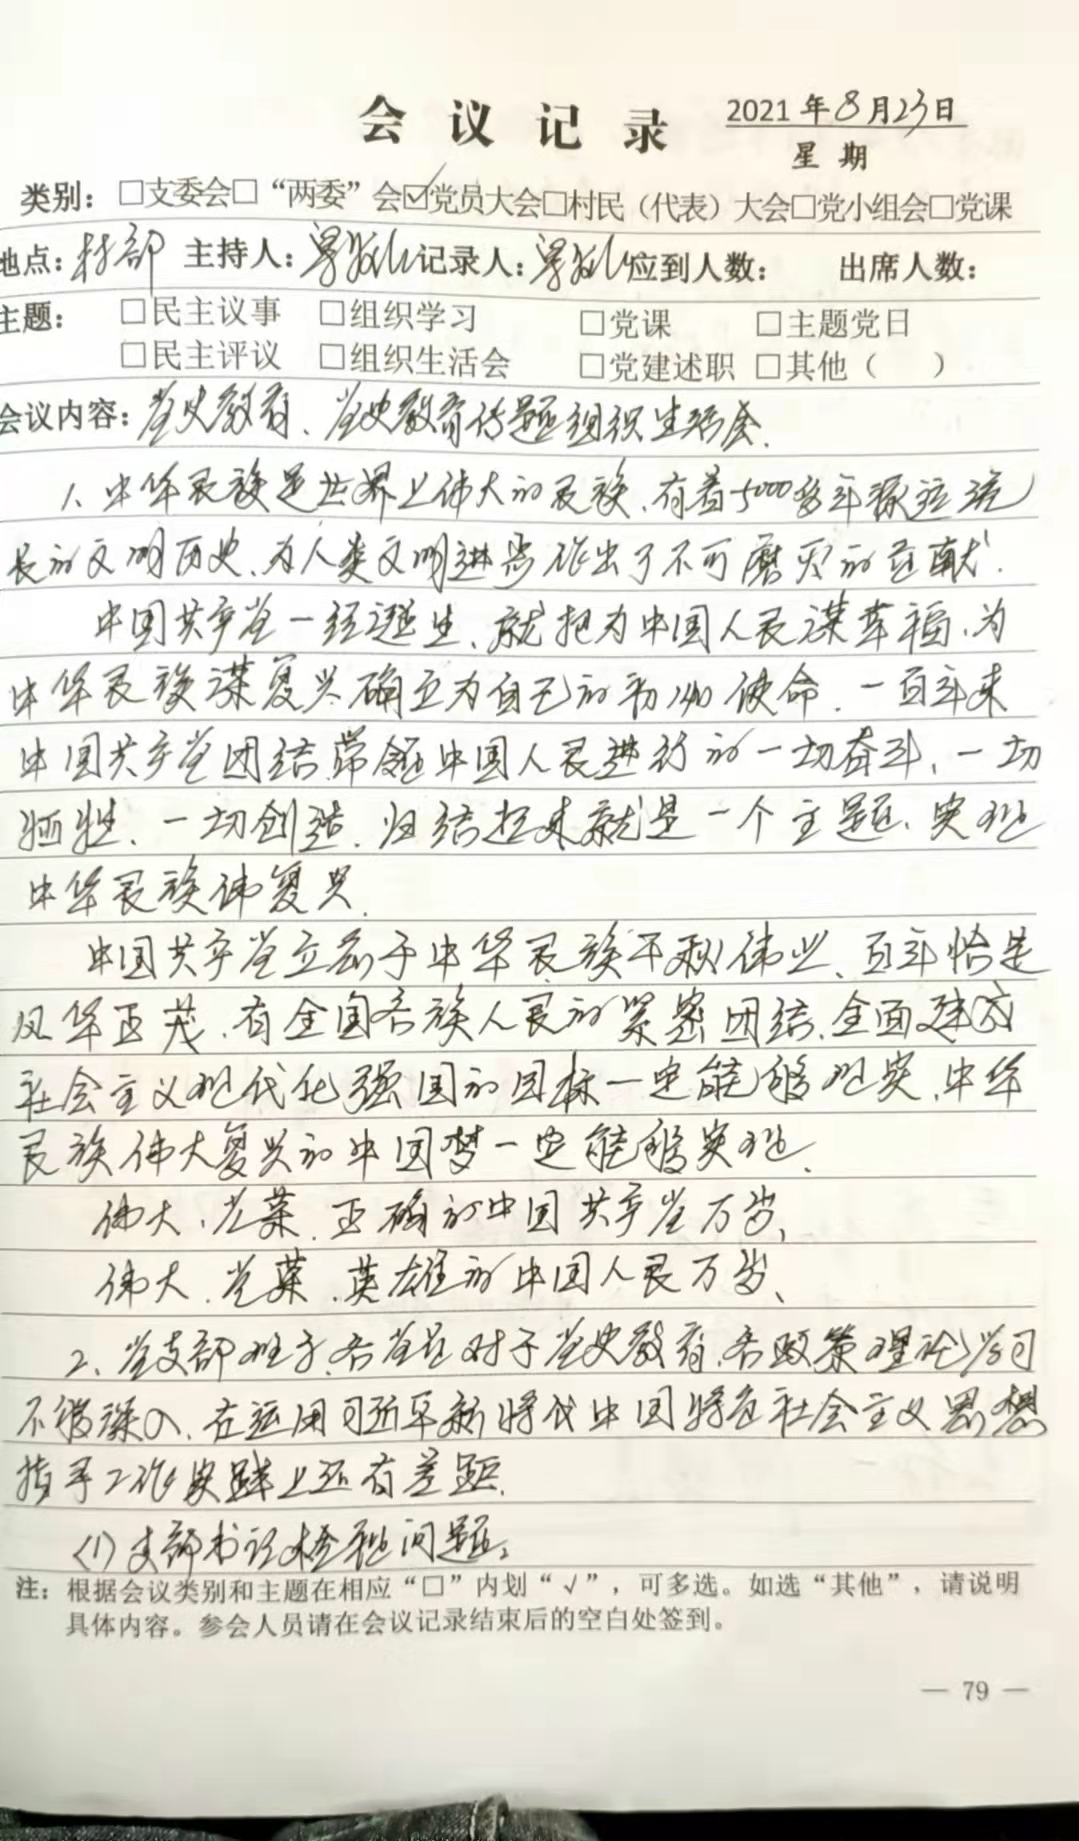 会议记录 2021年8月23日
星期
类别：□支委会□“两委”会☑党员大会□村民（代表）大会□党小组会□党课
地点：村部 主持人： 记录人： 应到人数： 出席人数：
主题： □民主议事 □组织学习 □党课 □主题党日
□民主评议 □组织生活会 □党建述职 □其他（ ）
会议内容：党史教育、党史教育专题组织生活会.
1、中华民族是世界上伟大的民族，有着5000多年源远流
长的文明历史、为人类文明进步作出了不可磨灭的贡献.
中国共产党一经诞生、就把为中国人民谋幸福、为
中华民族谋复兴确立为自己的初心使命. 一百年来
中国共产党团结带领中国人民进行的一切奋斗、一切
牺牲、一切创造，归结起来就是一个主题、实现
中华民族伟复兴.
中国共产党立志于中华民族千秋伟业、百年恰是
风华正茂，有全国各族人民的紧密团结，全面建成
社会主义现代化强国的目标一定能够现实，中华
民族伟大复兴的中国梦一定能够实现、
伟大、光荣、正确的中国共产党万岁、
伟大、光荣、英雄的中国人民万岁、
2、党支部班子、各党员对于党史教育、各政策理论学习
不够深入、在运用习近平新时代中国特色社会主义思想
指导工作实践上还有差距.
（1）支部书记检视问题：
注：根据会议类别和主题在相应“□”内划“√”，可多选。如选“其他”，请说明
具体内容。参会人员请在会议记录结束后的空白处签到。
— 79 —